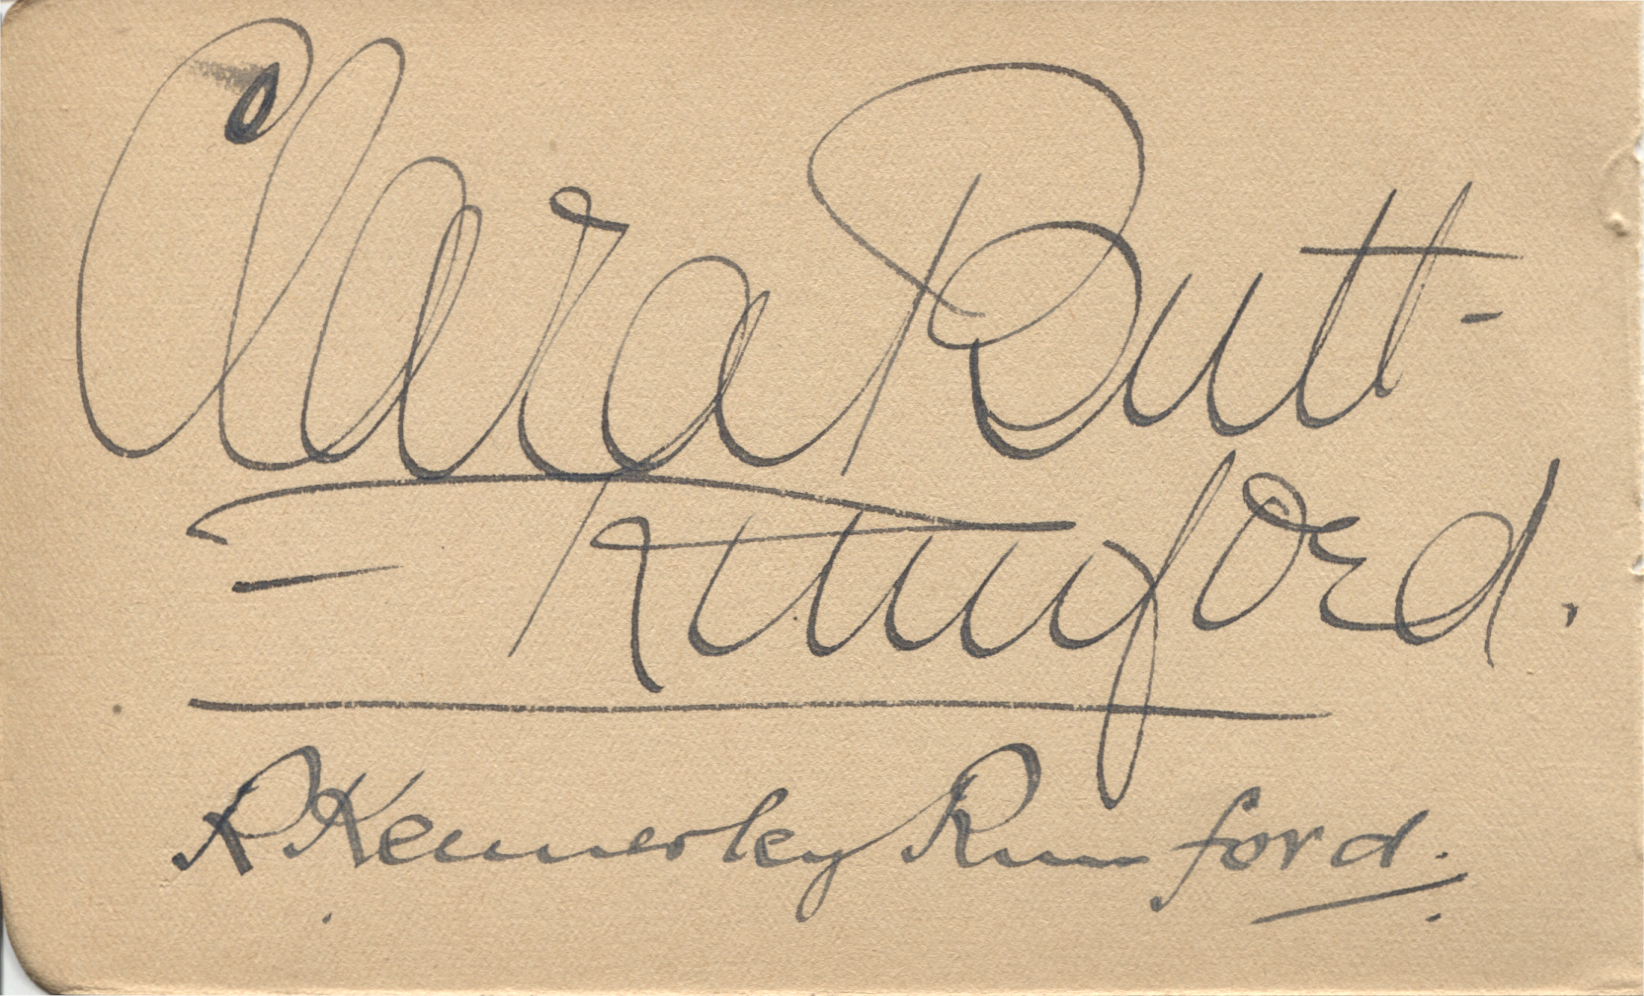 Clara Butt-
- Rumford.
R Kennerley Rumford.